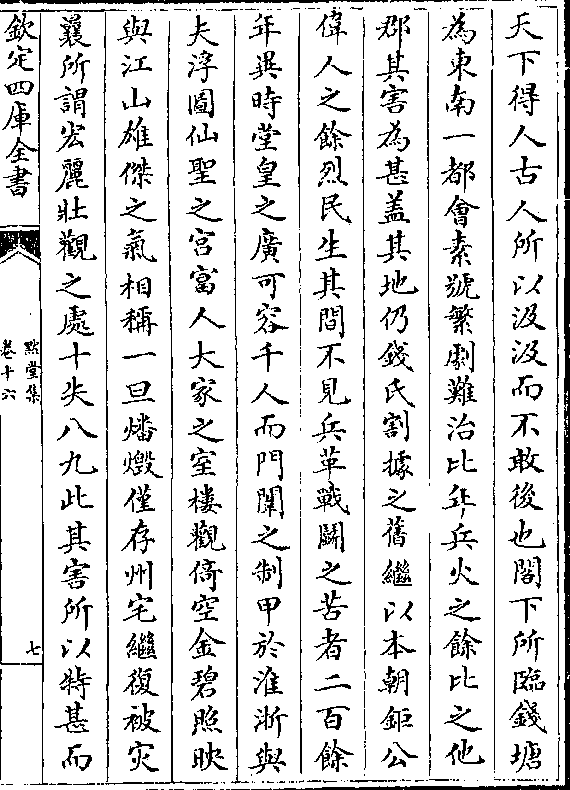 天下得人古人所以汲汲而不敢後也閤下所臨錢塘
為東南一都會素號繁劇難治比年兵火之餘比之他
郡其害為甚蓋其地仍錢氏割據之舊繼以本朝鉅公
偉人之餘烈民生其間不見兵革戰鬭之苦者二百餘
年異時堂皇之廣可容千人而門闑之制甲於淮浙與
夫浮圖仙聖之宮富人大家之室樓觀倚空金碧照映
與江山雄傑之氣相稱一旦燔燬僅存州宅繼復被灾
曩所謂宏麗壯觀之處十失八九此其害所以特甚而
欽定四庫全書
點堂集
卷十六
七